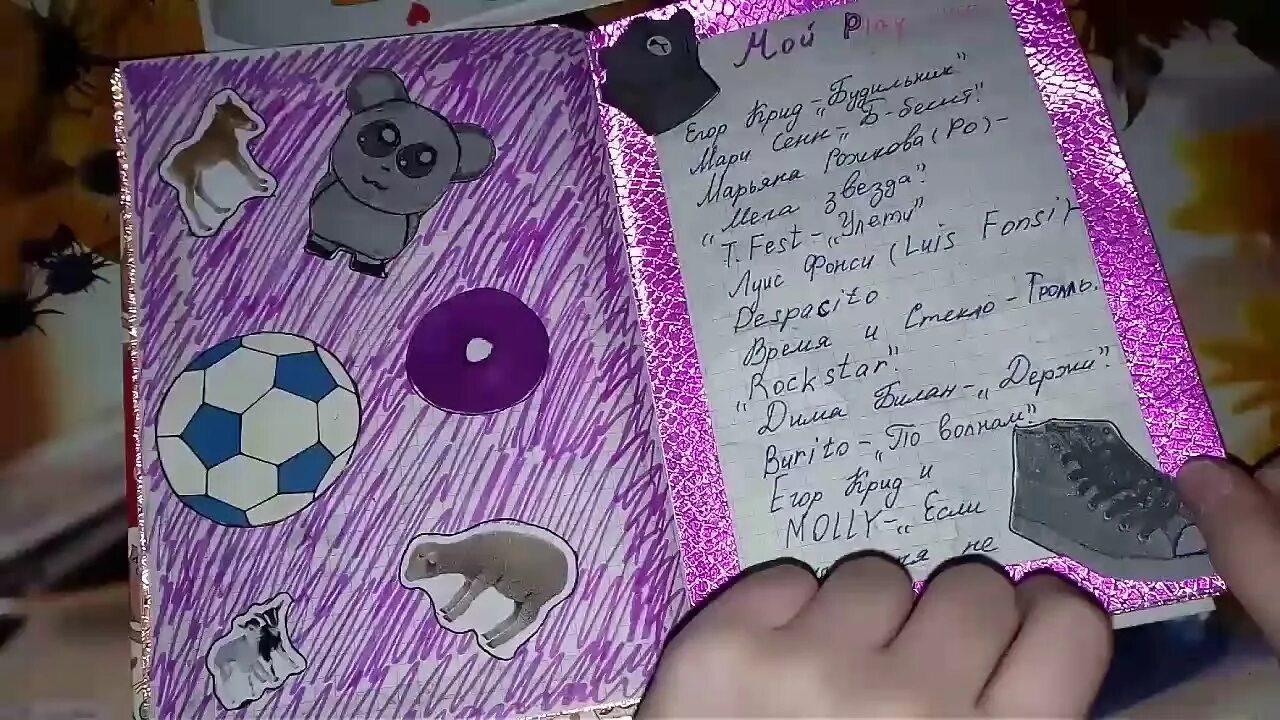 Мой Play
Егор Крид - „Будильник"
Мари Сенн - „Б-бесит".
Марьяна Рожкова (Ро) -
„Мега звезда".
T. Fest - „Улети"
Луис Фонси (Luis Fonsi)
Despacito
Время и Стекло - Тролль.
„Rockstar".
Дима Билан - „Держи".
Burito - „По волнам"
Егор Крид и
MOLLY - „Если
не